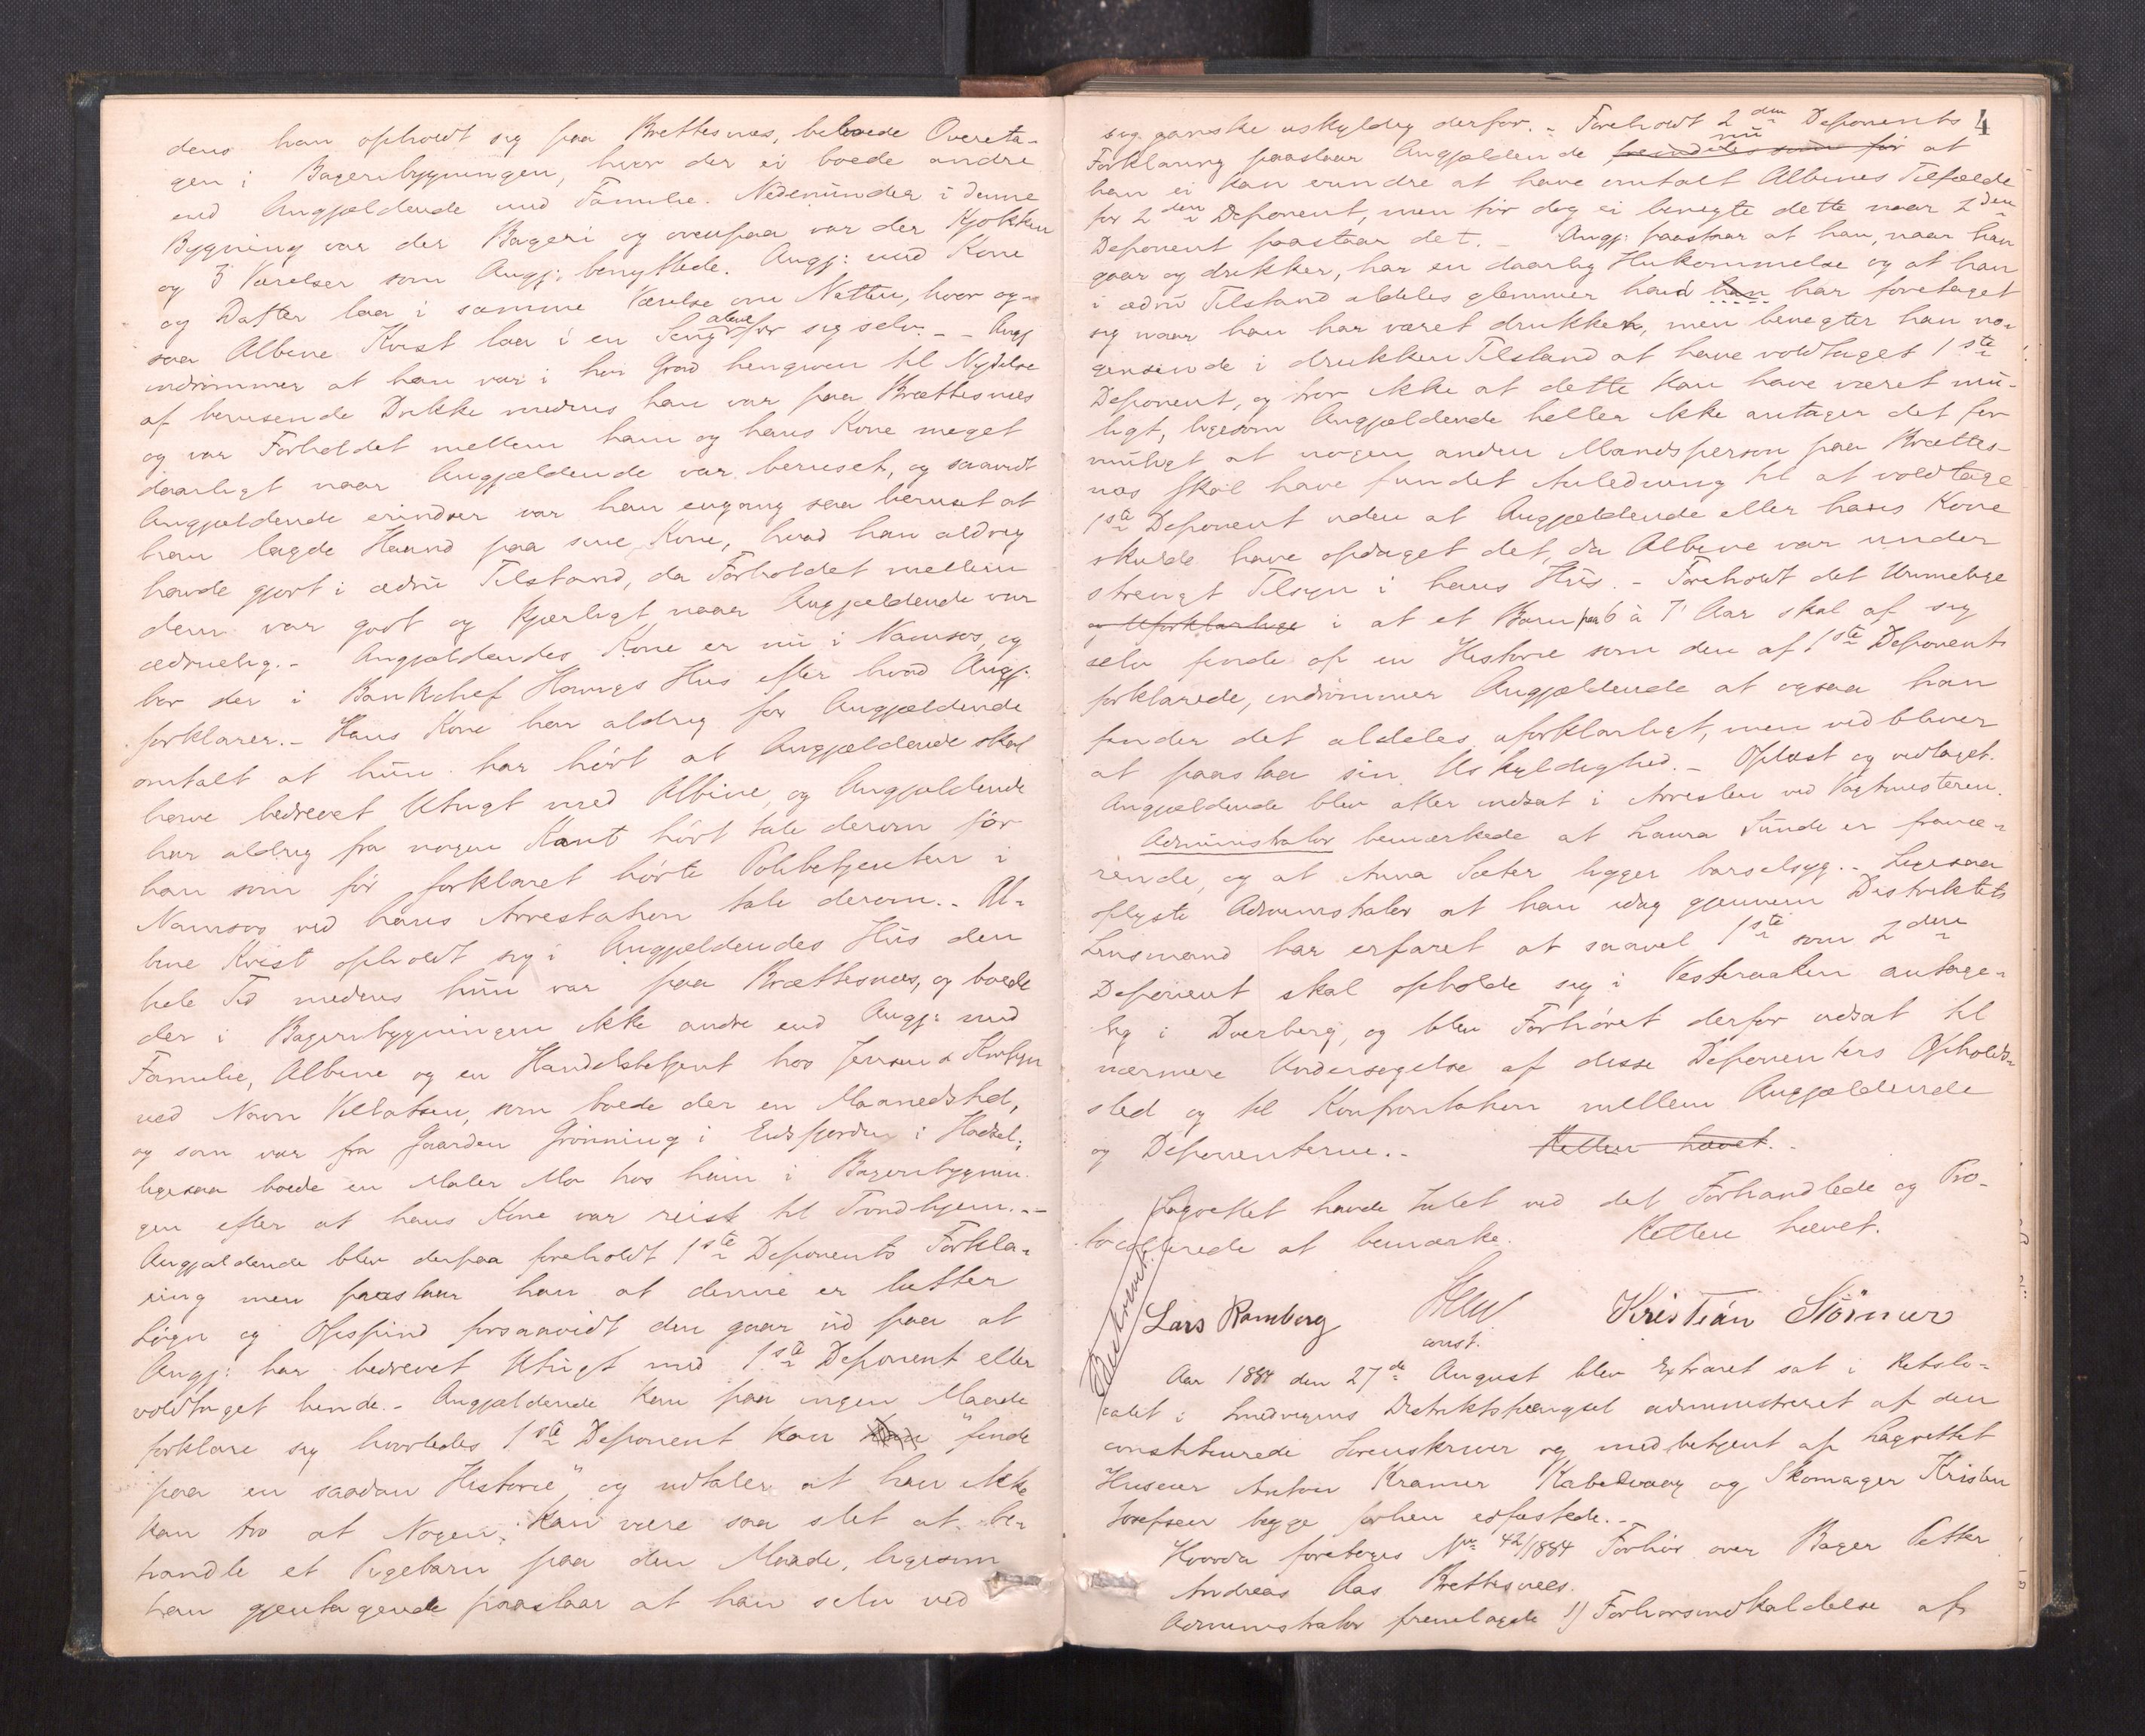 dens han opholdt sig paa Brettesnes, beboede Overeta-
gen i Bageribygningen, hvor der ei boede andre
end Angjældende med Familie. Nedenunder i denne
Bygning var der Bageri og ovenpaa var der Kjøkken
og 3 Værelser som Angj: benyttede. Angj: med Kone
og Datter laa i samme Værelse om Natten, hvor og-
saa Albine Kvist laa i en Seng alene for sig selv. - Angj
indrømmer at han var i høi Grad hengiven til Nydelse
af berusende Drikke medens han var paa Brættesnæs
og var Forholdet mellem ham og hans Kone meget
daarligt naar Angjældende var beruset, og saavidt
Angjældende erindrer var han engang saa beruset at
han lagde Haand paa sine Kone, hvad han aldrig
havde gjort i ædru Tilstand, da Forholdet mellem
dem var godt og kjærligt naar Angjældende var
ædruelig. - Angjældendes Kone er nu i Namsos, og
bor der i Bankchef Havigs Hus efter hvad Angj.
forklarer. - Hans Kone har aldrig for Angjældende
omtalt at hun har hørt at Angjældende skal
have bedrevet Utugt med Albine, og Angjældende
har aldrig fra nogen Kant hørt tale derom før
han som før forklaret hørte Politibetjenten i
Namsos ved hans Arrestation tale derom. - Al-
bine Kvist opholdt sig i Angjældendes Hus den
hele Tid medens hun var paa Brættesnæs, og boede
der i Bageribygningen ikke andre end Angj: med
Familie, Albine og en Handelsbetjent hos Jensen &
ved Navn Villatsen, som boede der en Maanedstid,
og som var fra Gaarden Grønning i Eidsfjorden i Hadsel;
ligesaa boede en Maler Mo hos ham i Bageribygnin-
gen efter at hans Kone var reist til Trondhjem. -
Angjældende blev derpaa foreholdt 1ste Deponents Forkla-
ring men paastaar han at denne er lutter
Løgn og Opspind forsaavidt den gaar ud paa at
Angj: har bedrevet Utugt med 1ste Deponent eller
voldtaget hende. - Angjældende kan paa ingen Maade
forklare sig hvorledes 1ste Deponent kan "finde
paa en saadan Historie" og udtaler at han ikke
kan tro at Nogen kan være saa slet at be-
handle et Pigebarn paa den Maade, ligesom
han gjentagende paastaar at han selv ved
4
sig ganske uskyldig derfor. - Foreholdt 2den Deponents
Forklaring paastaar Angjældende nu fremdeles som før at
han ei kan erindre at have omtalt Albines Tilfælde
for 2den Deponent, men tør dog ei benegte dette naar 2den
Deponent paastaar det. - Angj: paastaar at han, naar han
gaar og drikker, har en daarlig Hukommelse og at han
i ædru Tilstand aldeles glemmer hvad han har foretaget
sig naar han har været drukken, men benegter han no-
gensinde i drukken Tilstand at have voldtaget 1ste
Deponent, og tror ikke at dette kan have været mu-
ligt, ligesom Angjældende heller ikke antager det for
muligt at nogen anden Mandsperson paa Brættes-
næs skal have fundet Anledning til at voldtage
1ste Deponent uden at Angjældende eller hans Kone
skulde have opdaget det, da Albine var under
strengt Tilsyn i hans Hus. - Foreholdt det Urimelige
og Uforklarlige i at et Barn paa 6 à 7 Aar skal af sig
selv finde op en Historie som den af 1ste Deponent
forklarede, indrømmer Angjældende at ogsaa han
finder det aldeles uforklarligt, men vedbliver
at paastaa sin Uskyldighed. - Oplæst og vedtaget.
Angjældende blev atter indsat i Arresten ved Vagtmesteren.
Administrator bemærkede at Laura Sunde er fravæ-
rende, og at Anna Sæter ligger barselsyg. - Ligesaa
oplyste Administrator at han idag gjennem Distriktets
Lensmand har erfaret at saavel 1ste som 2den
Deponent skal opholde sig i Vesteraalen antage-
lig i Dverberg, og blev Forhøret derfor udsat til
nærmere Undersøgelse af disse Deponenters Opholds-
sted og til Konfrontation mellem Angjældende
og Deponenterne. - Retten hævet. -
Lagrettet havde Intet ved det Forhandlede og Pro-
tocollerede at bemærke. Retten hævet.
Lars Ramberg
Kristian Störmer
const.
Aar 1884 den 27de August blev Extraret sat i Retslo-
calet i Lødingens Distriktsfængsel administreret af den
constituerede Sorenskriver og medbetjent af Lagrettet
Huseier Anton Kramer Kabelvaag og Skomager Kristen
Josefsen begge forhen edfæstede. -
Hvorda foretoges No 42/1884 Forhør over Bager Petter
Andreas Aas Brettesnees.
Administrator fremlagde 1) Forhørsindkaldelse af